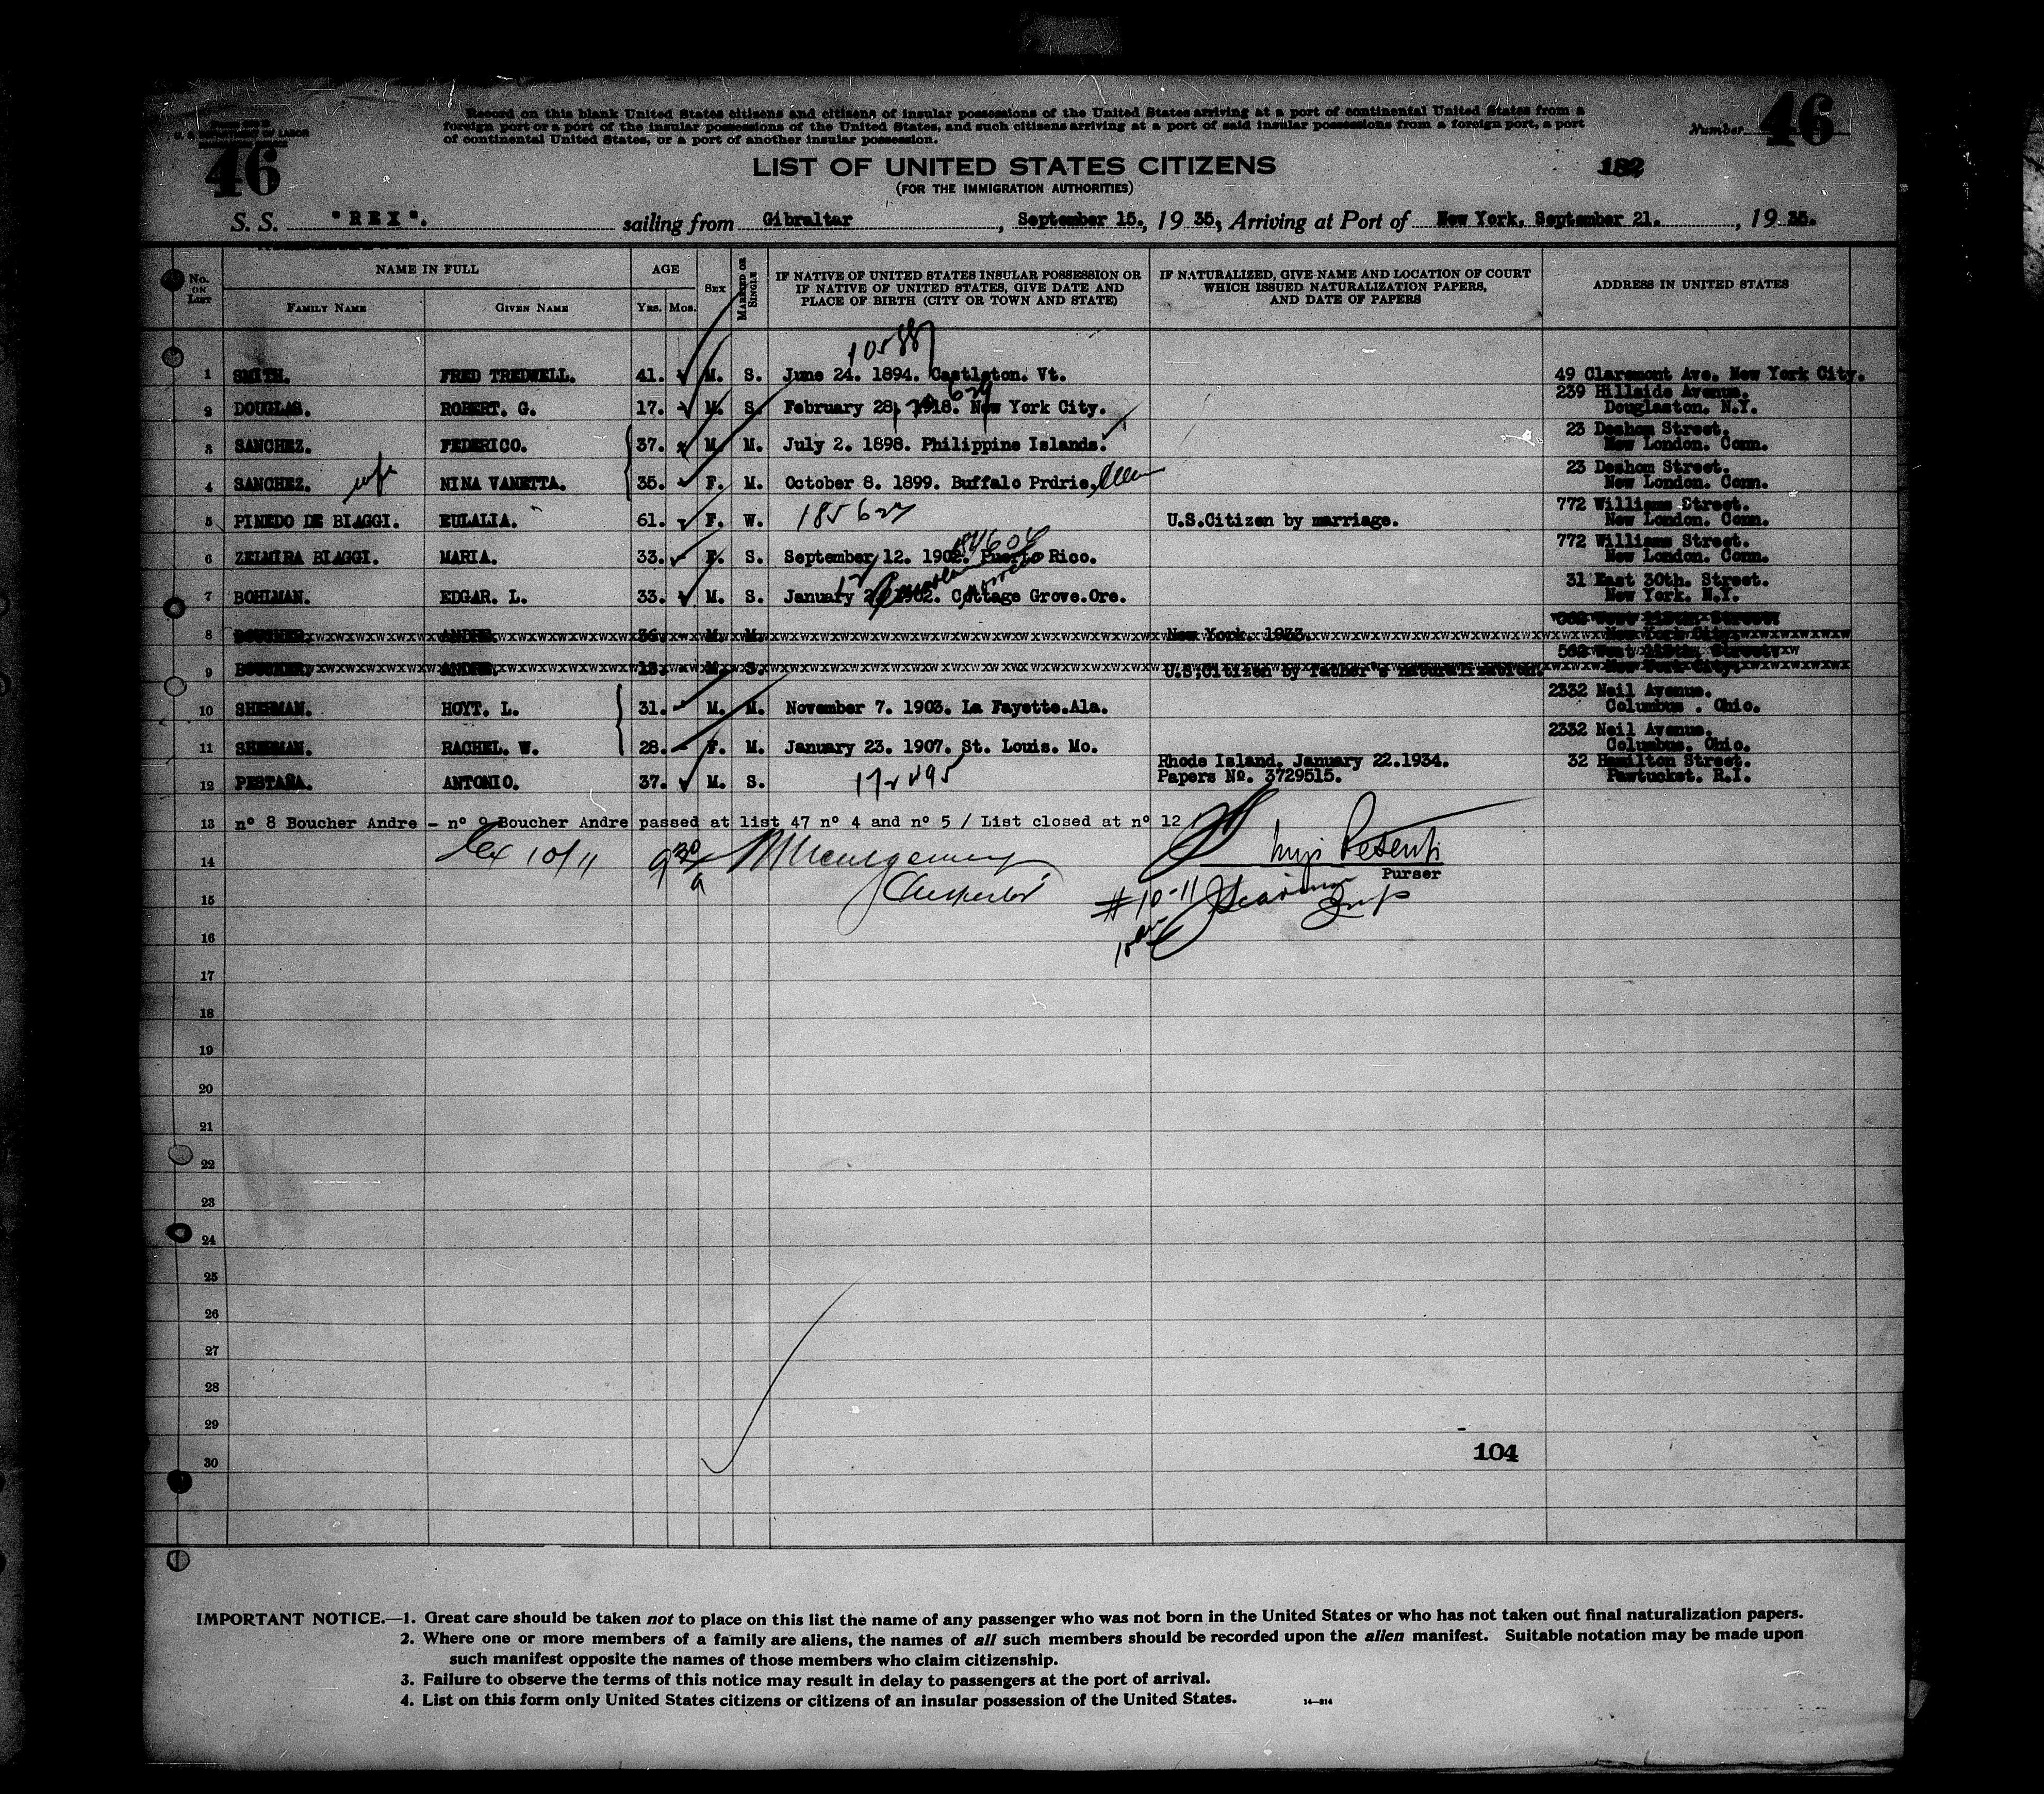 Record on this blank United States citizens and citizens of insular possessions of the United States arriving at a port of continental United States from a
foreign port or a port of the insular possessions of the United States, and such citizens arriving at a port of said insular possessions from a foreign port, a port
of continental United States, or a port of another insular possession.
U. S. DEPARTMENT OF LABOR
Number 46
46
LIST OF UNITED STATES CITIZENS
182
(FOR THE IMMIGRATION AUTHORITIES)
S. S. "REX". sailing from Gibraltar, September 15., 1935, Arriving at Port of New York, September 21., 1935.
No. ON LIST
NAME IN FULL
FAMILY NAME GIVEN NAME
AGE
YRS. MOS.
SEX
MARRIED OR SINGLE
IF NATIVE OF UNITED STATES INSULAR POSSESSION OR
IF NATIVE OF UNITED STATES, GIVE DATE AND
PLACE OF BIRTH (CITY OR TOWN AND STATE)
IF NATURALIZED, GIVE NAME AND LOCATION OF COURT
WHICH ISSUED NATURALIZATION PAPERS,
AND DATE OF PAPERS
ADDRESS IN UNITED STATES
1 SMITH. FRED TREDWELL. 41. M. S. June 24. 1894. Castleton. Vt. 49 Claremont Ave. New York City.
2 DOUGLAS. ROBERT. G. 17. M. S. February 28. 1918. New York City. 239 Hillside Avenue.
Douglaston. N.Y.
3 SANCHEZ. FEDERICO. 37. M. M. July 2. 1898. Philippine Islands. 23 Deshom Street.
New London. Conn.
4 SANCHEZ. wife NINA VANETTA. 35. F. M. October 8. 1899. Buffalo Prdrie, 23 Deshom Street.
New London. Conn.
5 PINEDO DE BIAGGI. EULALIA. 61. F. W. 185627 U.S.Citizen by marriage. 772 Williams Street.
New London. Conn.
6 ZELMIRA BIAGGI. MARIA. 33. F. S. September 12. 1902. Puerto Rico. 772 Williams Street.
New London. Conn.
7 BOHLMAN. EDGAR. L. 33. M. S. January 1902. Cottage Grove.Ore. 31 East 30th. Street.
New York. N.Y.
8 BOUCHER. ANDRE. 36. M. M. New York. 1933. New York City.
9 BOUCHER. ANDRE. M. S. U.S.Citizen by father's naturalization. New York City.
10 SHERMAN. HOYT. L. 31. M. M. November 7. 1903. La Fayette.Ala. 2332 Neil Avenue.
Columbus . Ohio.
11 SHERMAN. RACHEL. W. 28. F. M. January 23. 1907. St. Louis. Mo. 2332 Neil Avenue.
Columbus. Ohio.
12 PESTAÑA. ANTONIO. 37. M. S. Rhode Island. January 22.1934.
Papers No. 3729515. 32 Hamilton Street.
Pawtucket. R.I.
13 nº 8 Boucher Andre - nº 9 Boucher Andre passed at list 47 nº 4 and nº 5 / List closed at nº 12 /
14
Purser
15 # 10-11
16
17
18
19
20
21
22
23
24
25
26
27
28
29
30
104
IMPORTANT NOTICE.—1. Great care should be taken not to place on this list the name of any passenger who was not born in the United States or who has not taken out final naturalization papers.
2. Where one or more members of a family are aliens, the names of all such members should be recorded upon the alien manifest. Suitable notation may be made upon
such manifest opposite the names of those members who claim citizenship.
3. Failure to observe the terms of this notice may result in delay to passengers at the port of arrival.
4. List on this form only United States citizens or citizens of an insular possession of the United States.
14—814